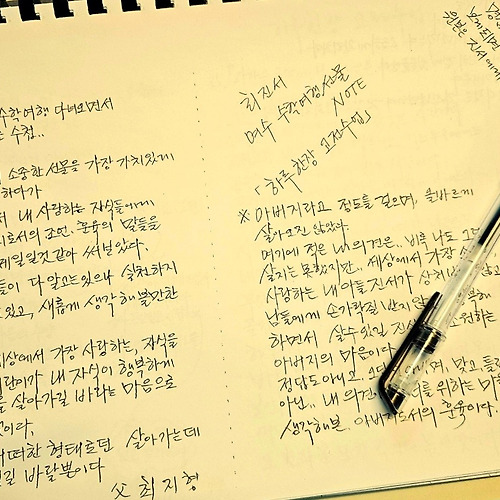 수학여행 다녀오면서
수첩..
소중한 선물을 가장 가치있게
하다가
내 사랑하는 자식들에게
로서의 조언, 훈육의 말들을
제일일것 같아 써보았다.
들이 다 알고는 있으나 실천하지
있고, 새롭게 생각해볼만한
세상에서 가장 사랑하는, 자식을
내 자식이 행복하게
살아가길 바라는 마음으로
것이다.
떠한 형태로던 살아가는데
길 바랄뿐이다
父 최지형
원본은 진서에게
최진서
여수 수학여행 선물
NOTE
「하루 한장 고전수업」
※ 아버지라고 정도를 걸으며, 올바르게
살아오진 않았다.
여기에 적은 내 의견은.. 비록 나도 그
살지는 못했지만.. 세상에서 가장
사랑하는 내 아들 진서가 상처
남들에게 손가락질 받지않
하면서 살수있길 원하는
아버지의 마음이다.
정답도 아니고, 맞고 틀
아닌.. 내 의견 위하는 마
생각해본.. 아버지로서의 훈육이다.